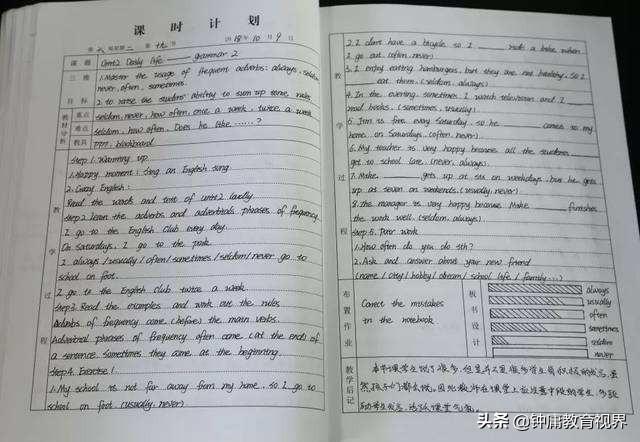 课 时 计 划
2018年10月9日
课 题 Unit2 Daily life —— grammar 2
三 维 目 标
1. Master the usage of frequent adverbs: always, seldom
never, often, sometimes.
2. to raise the students' ability to sum up some rules.
教材分析
重点 seldom, never, how often, once a week, twice a week
难点 seldom, how often, Does he like ……?
教具 PPT, blackboard
教 学 过 程
Step 1. Warming up
1. Happy moment: Sing an English song
2. Crazy English:
Read the words and text of unit2 loudly
Step 2. Learn the adverbs and adverbials phrases of frequency.
I go to the English club every day.
On Saturdays, I go to the park.
I always / usually / often / sometimes / seldom / never go to
school on foot.
I go to the English club twice a week
Step 3. Read the examples and work out the rules
Adverbs of frequency come (before) the main verbs.
Adverbial phrases of frequency often come (at the ends) of
a sentence. Sometimes they come at the beginning.
Step 4. Exercise 1.
1. My school is not far away from my home, so I go to
school on foot. (usually, never)
教 学 过 程
2. I don't have a bicycle so I ____ ride a bike when
I go out. (often, never)
3. I enjoy eating hamburgers, but they are not healthy, so I
____ eat them. (seldom, always)
4. In the evening, sometimes I watch television and I ____
read books. (sometimes, usually)
5. Jim is free every Saturday, so he ____ comes to my
home on Saturdays. (often, never)
6. My teacher is very happy because all the students ____
get to school late. (never, always)
7. Mike ____ gets up at six on weekdays, but he gets
up at seven on weekends. (usually, never)
8. The manager is very happy because Mike ____ finishes
the work well. (seldom, always)
Step 5. Pair work
1. How often do you do sth?
2. Ask and answer about your new friend
(name / city / hobby / dream / school life / family …?)
布置作业
Correct the mistakes
in the notebook.
板书设计
always
usually
often
sometimes
seldom
never
教学后记
头条 @钟庸教育视界